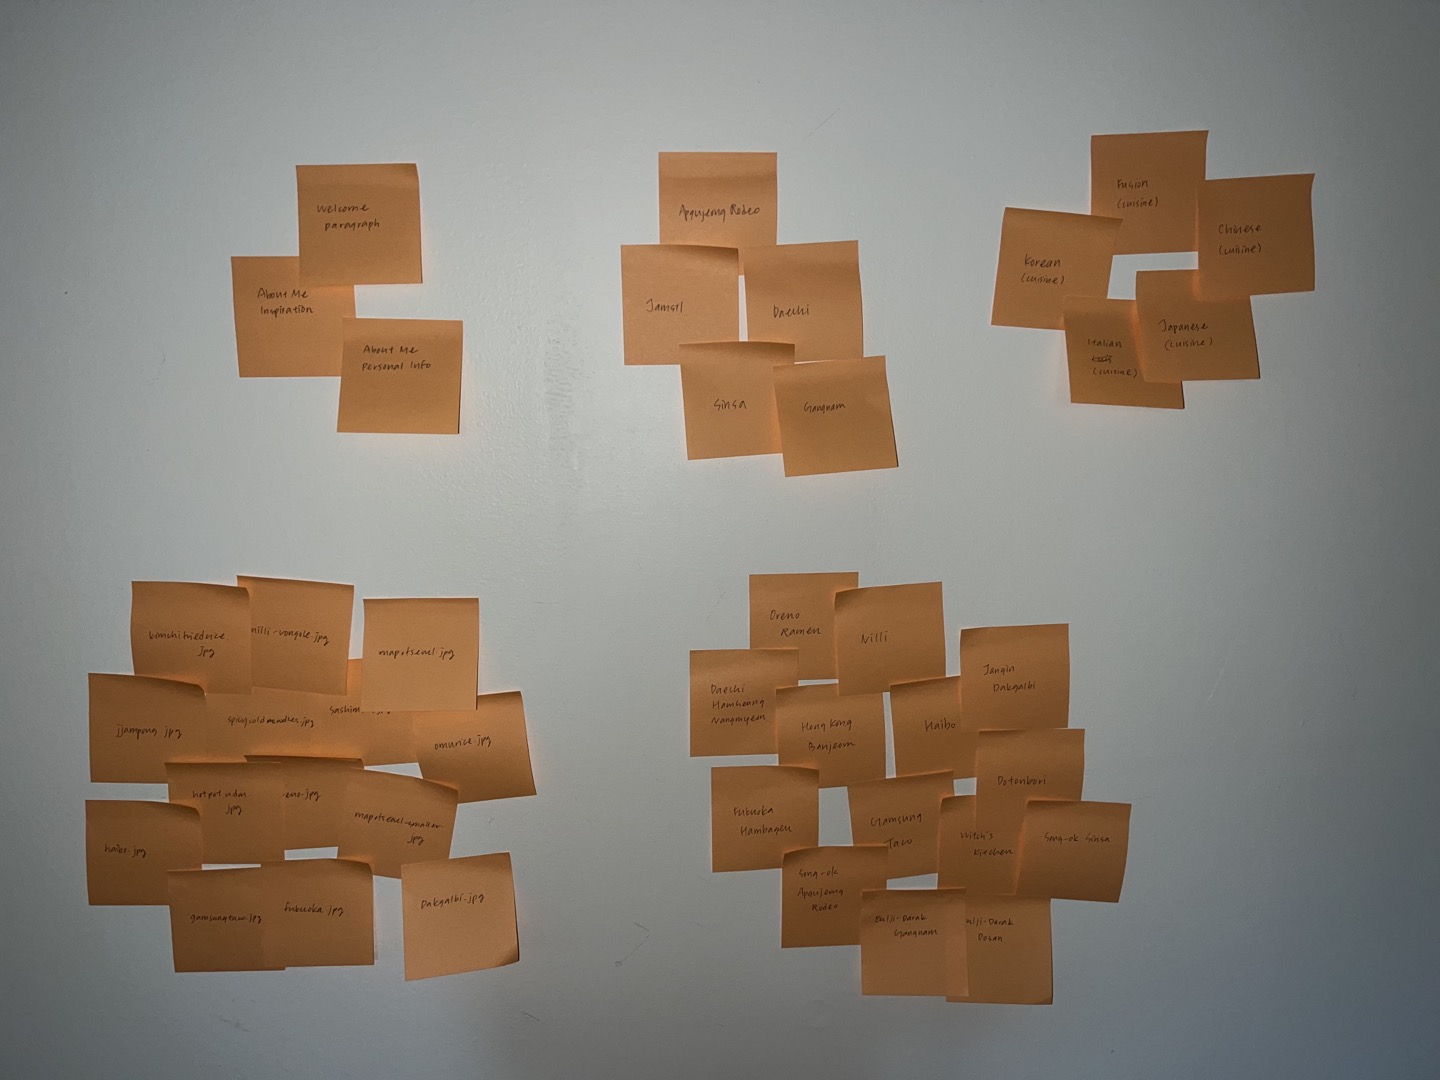 Welcome
paragraph
About Me
Inspiration
About Me
Personal Info
Apgujeong Rodeo
Jamsil
Daechi
Sinsa
Gangnam
Fusion
(cuisine)
Chinese
(cuisine)
Korean
(cuisine)
Japanese
(cuisine)
Italian
(cuisine)
kimchifriedrice
.jpg
nilli-vongole.jpg
mapotseuel.jpg
jjampong.jpg
spicycoldnoodles.jpg
sashim
omurice.jpg
hotpotudon
.jpg
-eno.jpg
mapotseuel-smaller
.jpg
haibo.jpg
gamsungtaco.jpg
fukuoka.jpg
Dakgalbi.jpg
Oreno
Ramen
Nilli
Jangin
Dakgalbi
Daechi
Hamheung
Nangmyeon
Hong Kong
Banjeom
Haibo
Dotonbori
Fukuoka
Hambageu
Gamsung
Taco
Witch's
Kitchen
Song-ok Sinsa
Song-ok
Apgujeong
Rodeo
Eulji-Darak
Gangnam
ulji-Darak
Dosan